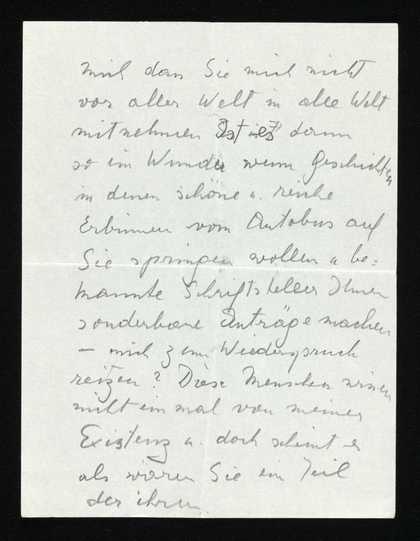 mich dass Sie mich nicht
vor aller Welt in alle Welt
mitnehmen Ist es denn
so ein Wunder wenn Geschichten
in denen schöne u. reiche
Erbinnen vom Autobus auf
Sie springen wollen u be=
kannte Schriftsteller Ihnen
sonderbare Anträge machen
— mich zum Wiederspruch
reizen? Diese Menschen wissen
nicht einmal von meiner
Existenz u. doch scheint es
als wären Sie ein Teil
der ihren